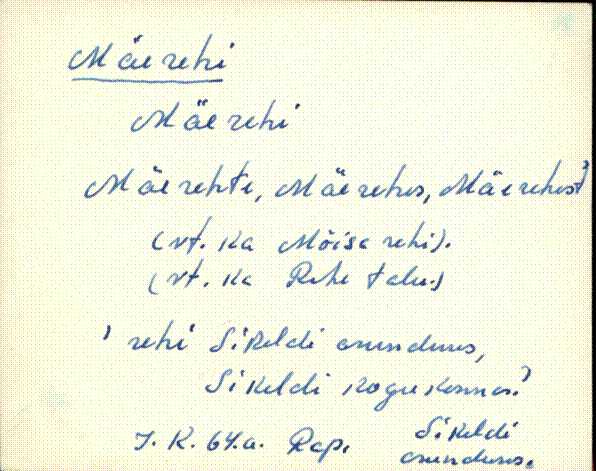 Mäerehi
Mäerehi
Mäerehte, Mäerehes, Mäerehest)
(vt. ka Mõisa rehi).
(vt. ka Rehe talu.)
' rehi Sikeldi asunduses,
Sikeldi kogukonnas.'
J. K. 64.a. Rap. Sikeldi
asunduses.